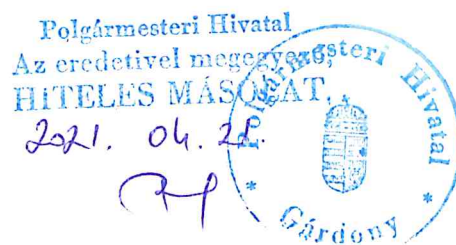 Polgármesteri Hivatal
Az eredetivel megegyező,
HITELES MÁSOLAT.
2021. 04. 28.
Polgármesteri Hivatal
* Gárdony *